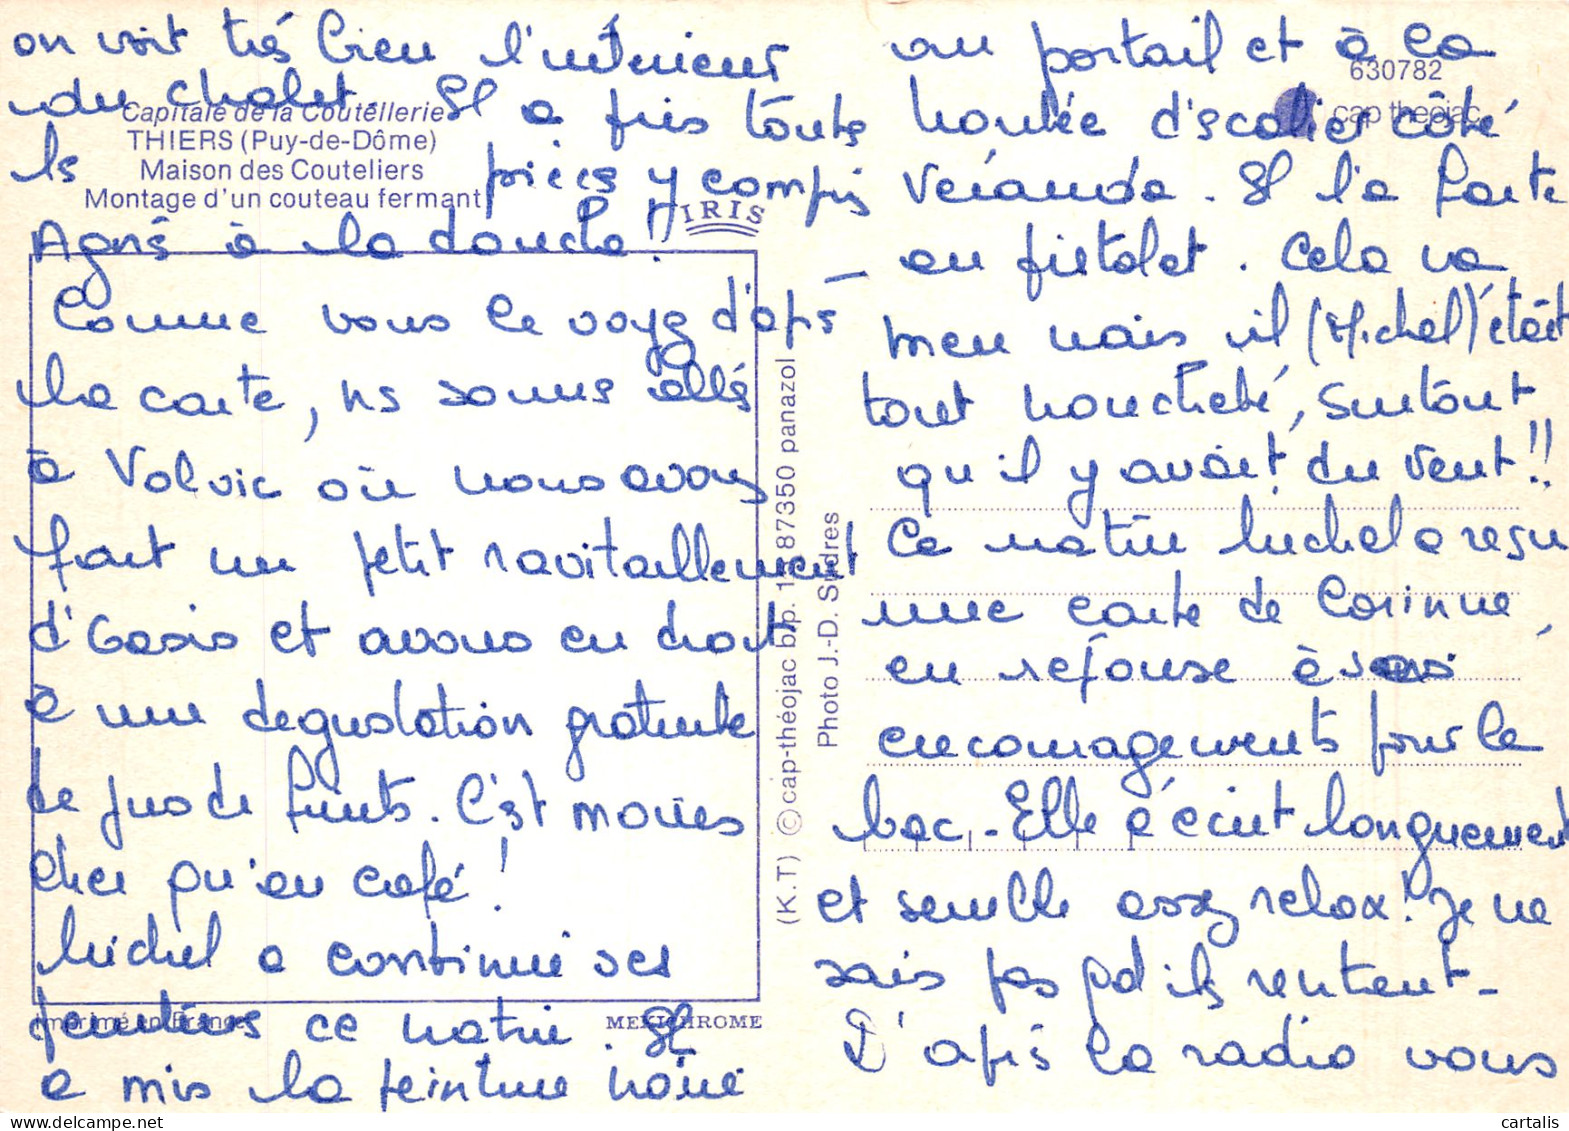 on voit très bien l'intérieur
du chalet. Il a pris toute
ls pièces y compris
Agnès à la douche !
Capitale de la Coutellerie
THIERS (Puy-de-Dôme)
Maison des Couteliers
Montage d'un couteau fermant
IRIS
Comme vous le voyez d'après
la carte, ns sommes allés
à Volvic où nous avons
fait un petit ravitaillement
d'Oasis et avons eu droit
à une dégustation gratuite
de jus de fruits. C'est moins
cher qu'au café !
Michel a continué ses
peintures ce matin. Il
a mis la peinture noire
Imprimé en France
MEXICHROME
(K.T) © cap-théojac b.p. 87350 panazol
Photo J.-D. Sudres
630782
cap théojac
au portail et à la
montée d'escalier côté
véranda. Il l'a faite
au pistolet. Cela va
bien mais il (Michel) était
tout moucheté, surtout
qu'il y avait du vent !!
Ce matin Michel a reçu
une carte de Corinne,
en réponse à ses
encouragements pour le
bac. Elle a écrit longuement
et semble assez relax ! Je ne
sais pas qd ils rentrent.
D'après la radio vous
cartalis